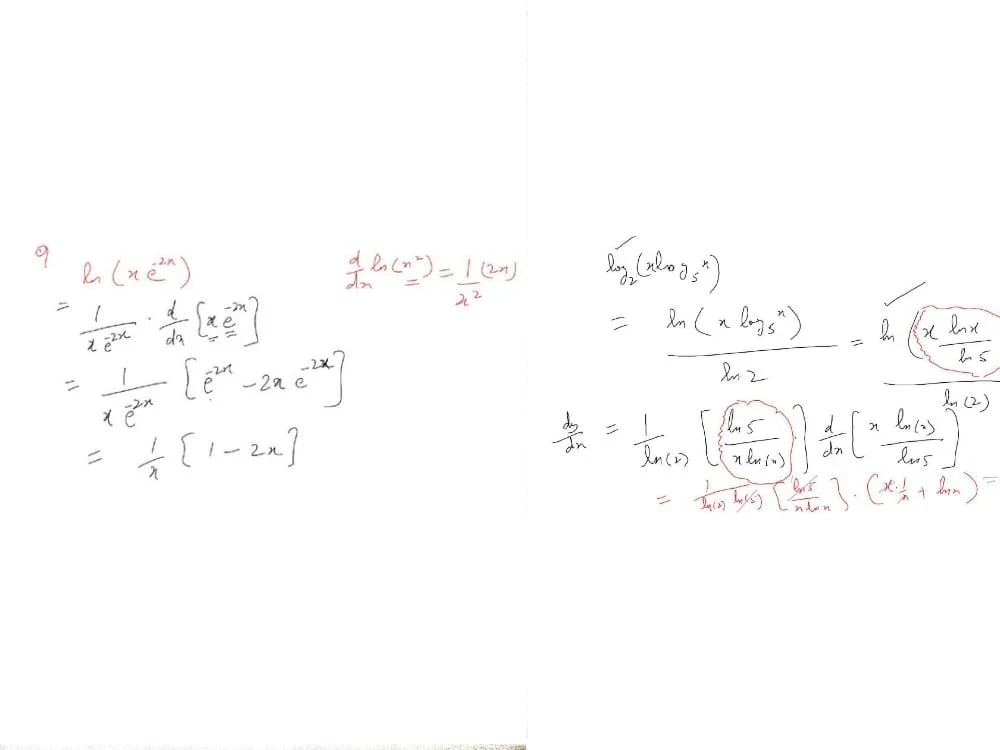 9
ln (x e^{-2x})
= 1/(x e^{-2x}) · d/dx [x e^{-2x}]
= 1/(x e^{-2x}) [e^{-2x} - 2x e^{-2x}]
= 1/x [1 - 2x]
d/dx ln(x²) = 1/x² (2x)
log₂(x log₅ x)
= ln (x log₅ x)/ln 2 = ln (x ln x/ln 5)/ln(2)
dy/dx = 1/ln(2) [ln 5/(x ln(x))] d/dx [x ln(x)/ln 5]
= 1/(ln(2) ln(5)) [ln 5/(x ln x)] · (x · 1/x + ln x) =